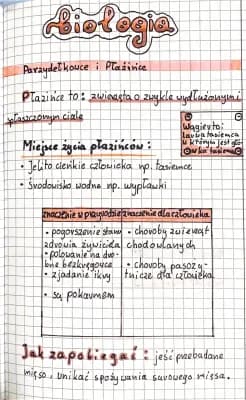 biologia
Parzydełkowce i Płazińce
Płazińce to: zwierzęta o zwykle wydłużonym i
płaszczonym ciele
Wągier to:
larwa tasiemca
w którym jest głó-
wka tasiemca
Miejsce życia płazińców:
• Jelito cienkie człowieka np. tasiemce
• Środowisko wodne np. wypławki
znaczenie w przyrodzie
znaczenie dla człowieka
• pogorszenie stanu
zdrowia żywiciela
• polowanie na dro-
bne bezkręgowce
• zjadanie ikry
• są pokarmem
• choroby zwierząt
chodowlanych
• choroby pasoży-
tnicze dla człowieka
Jak zapobiegać: jeść przebadane
mięso, unikać spożywania surowego mięsa.